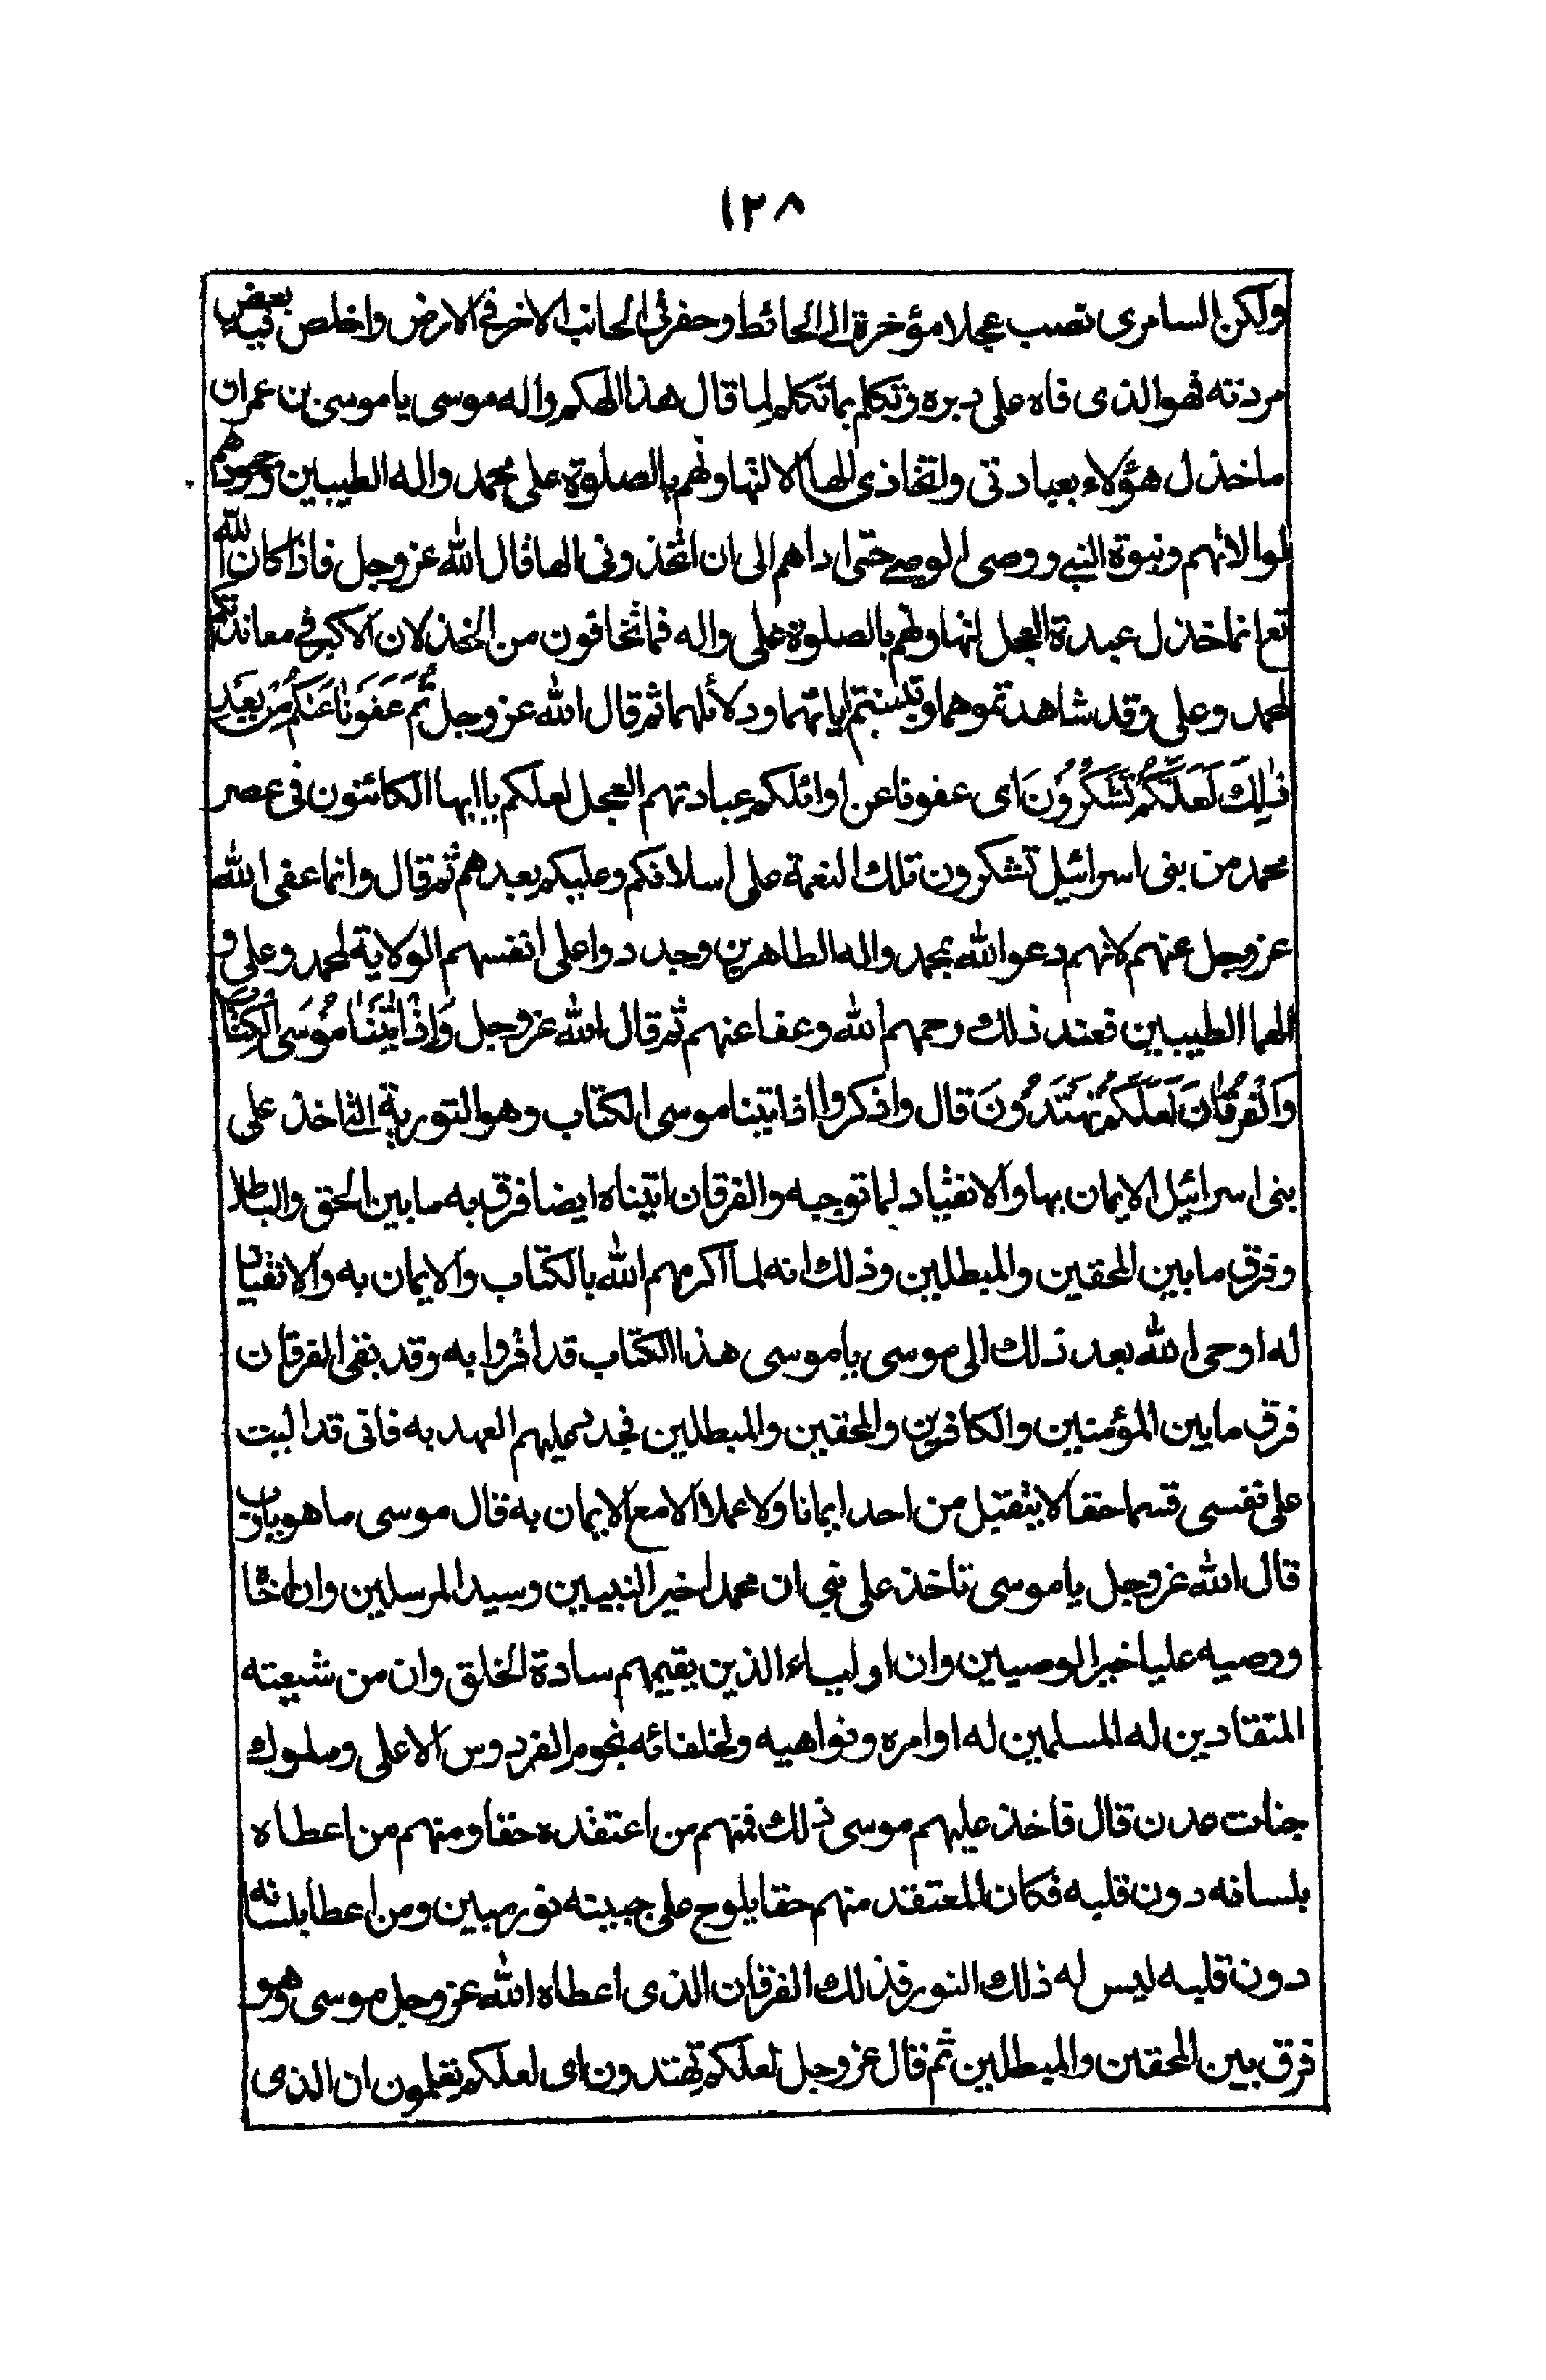 ١٢٨
ولكن السامرى نصب عجلا مؤخرة الى الحائط وحفر فى الجانب الاخر فى الارض واخلص فيه بعض
مردته فهو الذى فاه على دبره وتكلم بما تكلم لما قال هذا الهكم واله موسى يا موسى بن عمران
ما خذل هؤلاء بعبادتى واتخاذى الها الا لتهاونهم بالصلوة على محمد واله الطيبين وجحودهم
لموالاتهم ونبوة النبى ووصى الوصى حتى اداهم الى ان اتخذونى الها قال الله عز وجل فاذا كان الله
تع انما خذل عبدة العجل لتهاونهم بالصلوة على واله فما تخافون من الخذلان الاكبر فى معاندتكم
لمحمد وعلى وقد شاهدتموهما وتبينتم اياتهما ودلائلهما ثم قال الله عز وجل ثُمَّ عَفَوْنَا عَنْكُمْ مِنْ بَعْدِ
ذٰلِكَ لَعَلَّكُمْ تَشْكُرُونَ اى عفونا عن اوائلكم عبادتهم العجل لعلكم يا ايها الكائنون فى عصر
محمد من بنى اسرائيل تشكرون تلك النعمة على اسلافكم وعليكم بعدهم ثم قال وانما عفى الله
عز وجل عنهم لانهم دعوا الله بمحمد واله الطاهرين وجددوا على انفسهم الولاية لمحمد وعلى و
الهما الطيبين فعند ذلك رحمهم الله وعفا عنهم ثم قال الله عز وجل وَاِذْ اٰتَيْنَا مُوسَى الْكِتَابَ
وَالْفُرْقَانَ لَعَلَّكُمْ تَهْتَدُونَ قال واذكروا اذ اتينا موسى الكتاب وهو التورية الذى اخذ على
بنى اسرائيل الايمان بها والانقياد لما توجبه والفرقان اتيناه ايضا فرق به ما بين الحق والباطل
وفرق ما بين المحقين والمبطلين وذلك انه لما اكرمهم الله بالكتاب والايمان به والانقياد
له اوحى الله بعد ذلك الى موسى يا موسى هذا الكتاب قد اقروا به وقد بقى الفرقان
فرق ما بين المؤمنين والكافرين والمحقين والمبطلين فجدد عليهم العهد به فانى قد اليت
على نفسى قسما حقا لا يتقبل من احد ايمانا ولا عملا الا مع الايمان به قال موسى ما هو يا رب
قال الله عز وجل يا موسى تاخذ على بنى ان محمدا خير النبيين وسيد المرسلين وان اخاه
ووصيه عليا خير الوصيين وان اولياء الذين يقيمهم سادة الخلق وان من شيعته
المنقادين له المسلمين له اوامره ونواهيه ولخلفائه نجوم الفردوس الاعلى وملوك
جنات عدن قال فاخذ عليهم موسى ذلك فمنهم من اعتقده حقا ومنهم من اعطاه
بلسانه دون قلبه فكان المعتقد منهم حقا يلوح على جبينه نور مبين ومن اعطا بلسانه
دون قلبه ليس له ذلك النور فذلك الفرقان الذى اعطاه الله عز وجل موسى وهو
فرق بين المحقين والمبطلين ثم قال عز وجل لعلكم تهتدون اى لعلكم تعلمون ان الذى